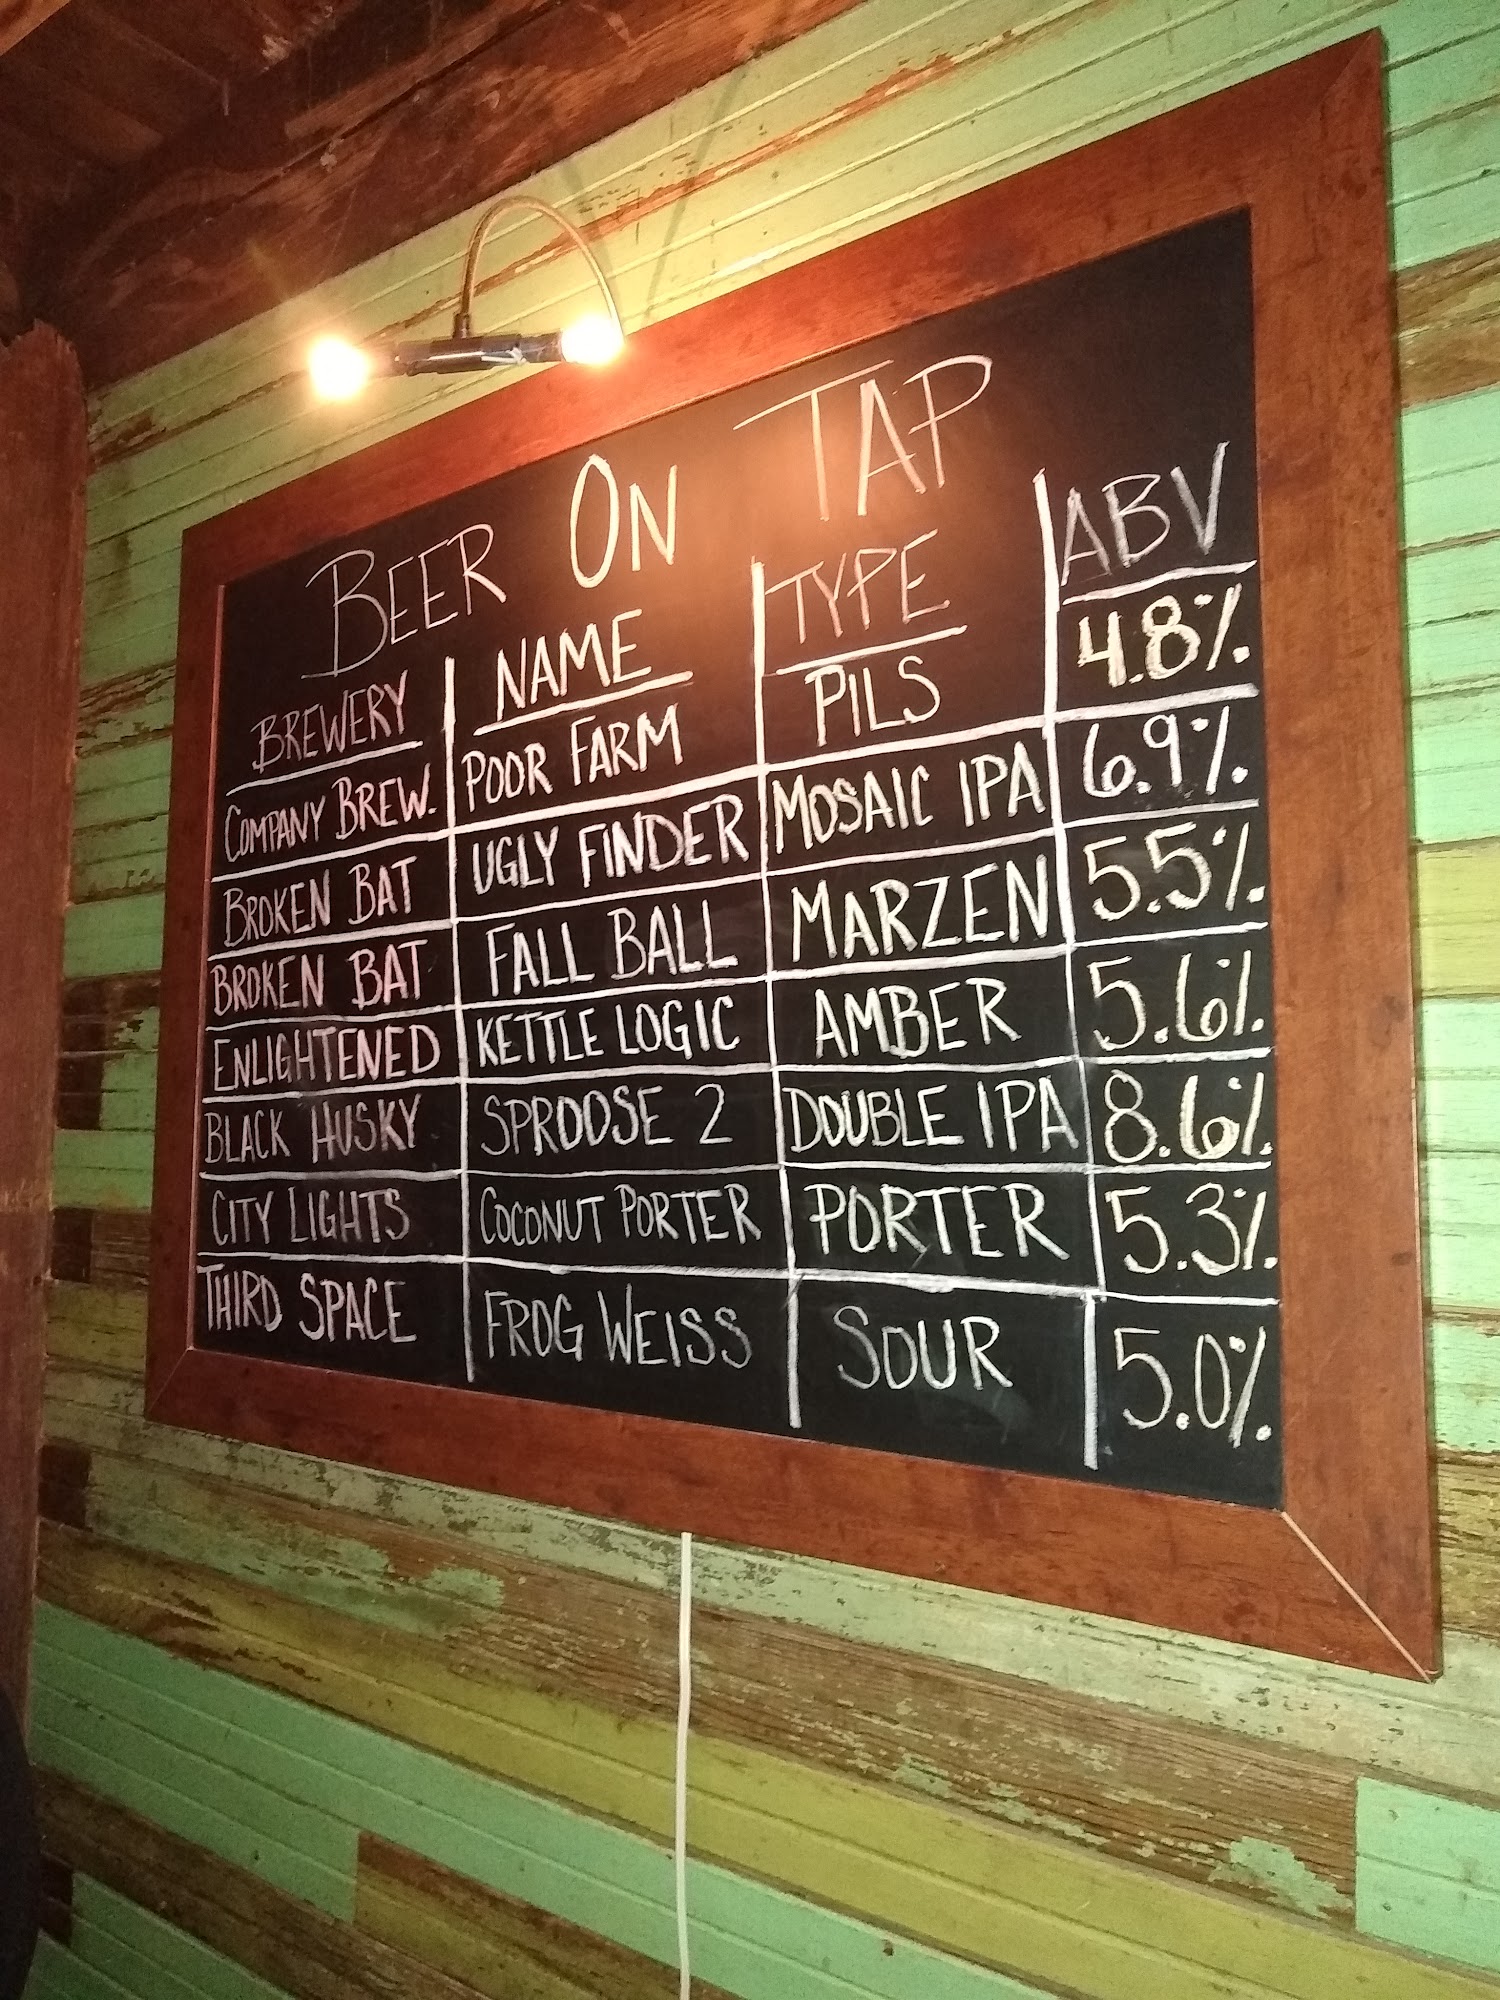 BEER ON TAP
BREWERY NAME TYPE ABV
COMPANY BREW. POOR FARM PILS 4.8%
BROKEN BAT UGLY FINDER MOSAIC IPA 6.9%
BROKEN BAT FALL BALL MARZEN 5.5%
ENLIGHTENED KETTLE LOGIC AMBER 5.6%
BLACK HUSKY SPROOSE 2 DOUBLE IPA 8.6%
CITY LIGHTS COCONUT PORTER PORTER 5.3%
THIRD SPACE FROG WEISS SOUR 5.0%